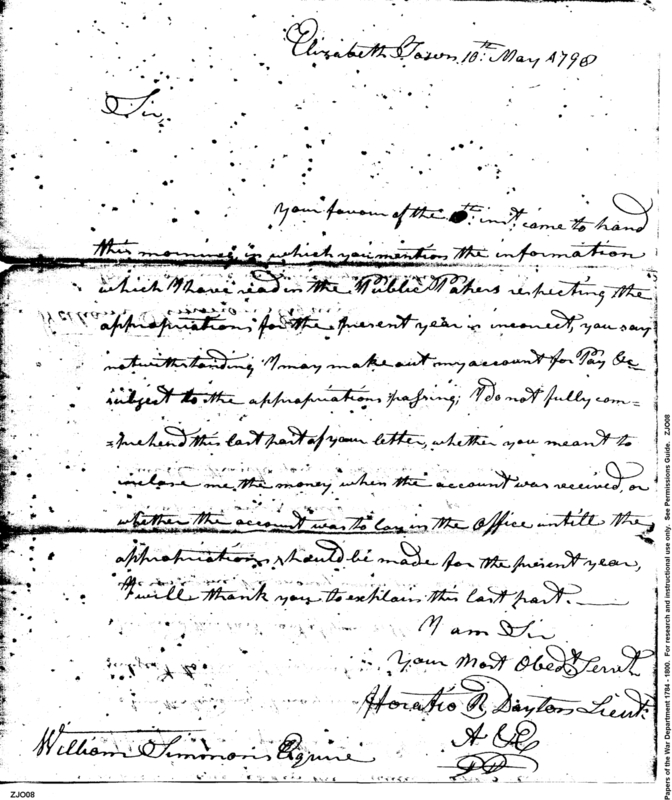 Elizabeth Town 10th. May 1798
Sir,
Your favour of the th. inst. came to hand
this morning, in which you mention the information
which I have read in the Public Papers respecting the
appropriations for the present year is incorrect, you say
notwithstanding I may make out my account for Pay &c
subject to the appropriations passing; I do not fully com=
=prehend this last part of your letter, whether you meant to
inclose me the money when the account was received, or
whether the account was to lay in the Office untill the
appropriations should be made for the present year,
I will thank you to explain this last part.
I am Sir
Your Most Obedt. Servt.
Horatio R Dayton Lieut.
William Simmons Esquire
ZJO08
Papers of the War Department 1784 - 1800. For research and instructional use only. See Permissions Guide. ZJO08